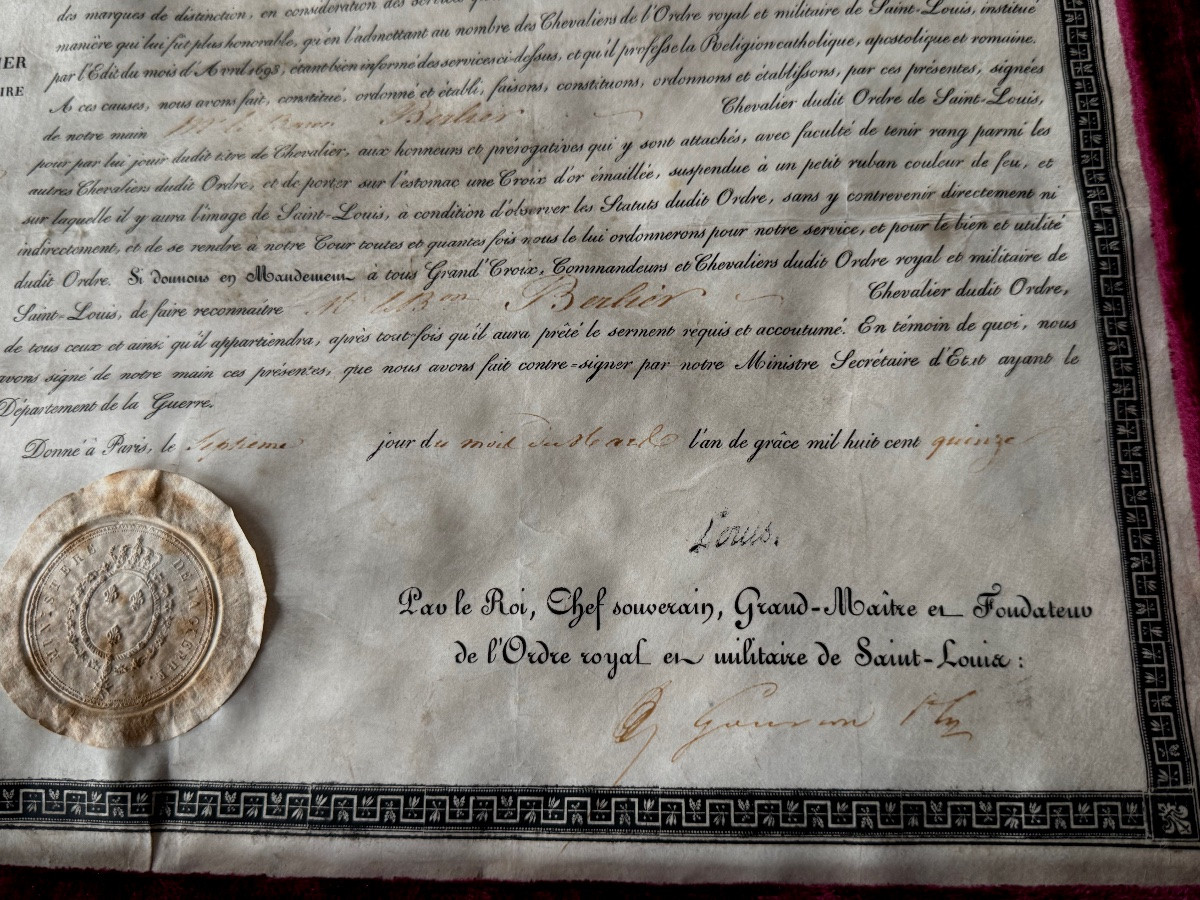 des marques de distinction, en considération des services
manière qui lui fut plus honorable, qu'en l'admettant au nombre des Chevaliers de l'Ordre royal et militaire de Saint-Louis, institué
par l'Edit du mois d'Avril 1693, étant bien informé des services ci-dessus, et qu'il professe la Religion catholique, apostolique et romaine.
A ces causes, nous avons fait, constitué, ordonné et établi, faisons, constituons, ordonnons et établissons, par ces présentes, signées
de notre main Mr le Baron Berlier Chevalier dudit Ordre de Saint-Louis,
pour par lui jouir dudit titre de Chevalier, aux honneurs et prérogatives qui y sont attachés, avec faculté de tenir rang parmi les
autres Chevaliers dudit Ordre, et de porter sur l'estomac une Croix d'or émaillée, suspendue à un petit ruban couleur de feu, et
sur laquelle il y aura l'image de Saint-Louis, à condition d'observer les Statuts dudit Ordre, sans y contrevenir directement ni
indirectement, et de se rendre à notre Cour toutes et quantes fois nous le lui ordonnerons pour notre service, et pour le bien et utilité
dudit Ordre. Si donnons en Mandement à tous Grand'Croix, Commandeurs et Chevaliers dudit Ordre royal et militaire de
Saint-Louis, de faire reconnaitre Mr le Bon Berlier Chevalier dudit Ordre,
de tous ceux et ainsi qu'il appartiendra, après tout-fois qu'il aura prêté le serment requis et accoutumé. En témoin de quoi, nous
avons signé de notre main ces présentes, que nous avons fait contre=signer par notre Ministre Secrétaire d'Etat ayant le
Département de la Guerre.
Donné à Paris, le Septieme jour du mois de l'an de grâce mil huit cent quinze
Louis.
Par le Roi, Chef souverain, Grand-Maître et Fondateur
de l'Ordre royal et militaire de Saint-Louis :
IER
IRE